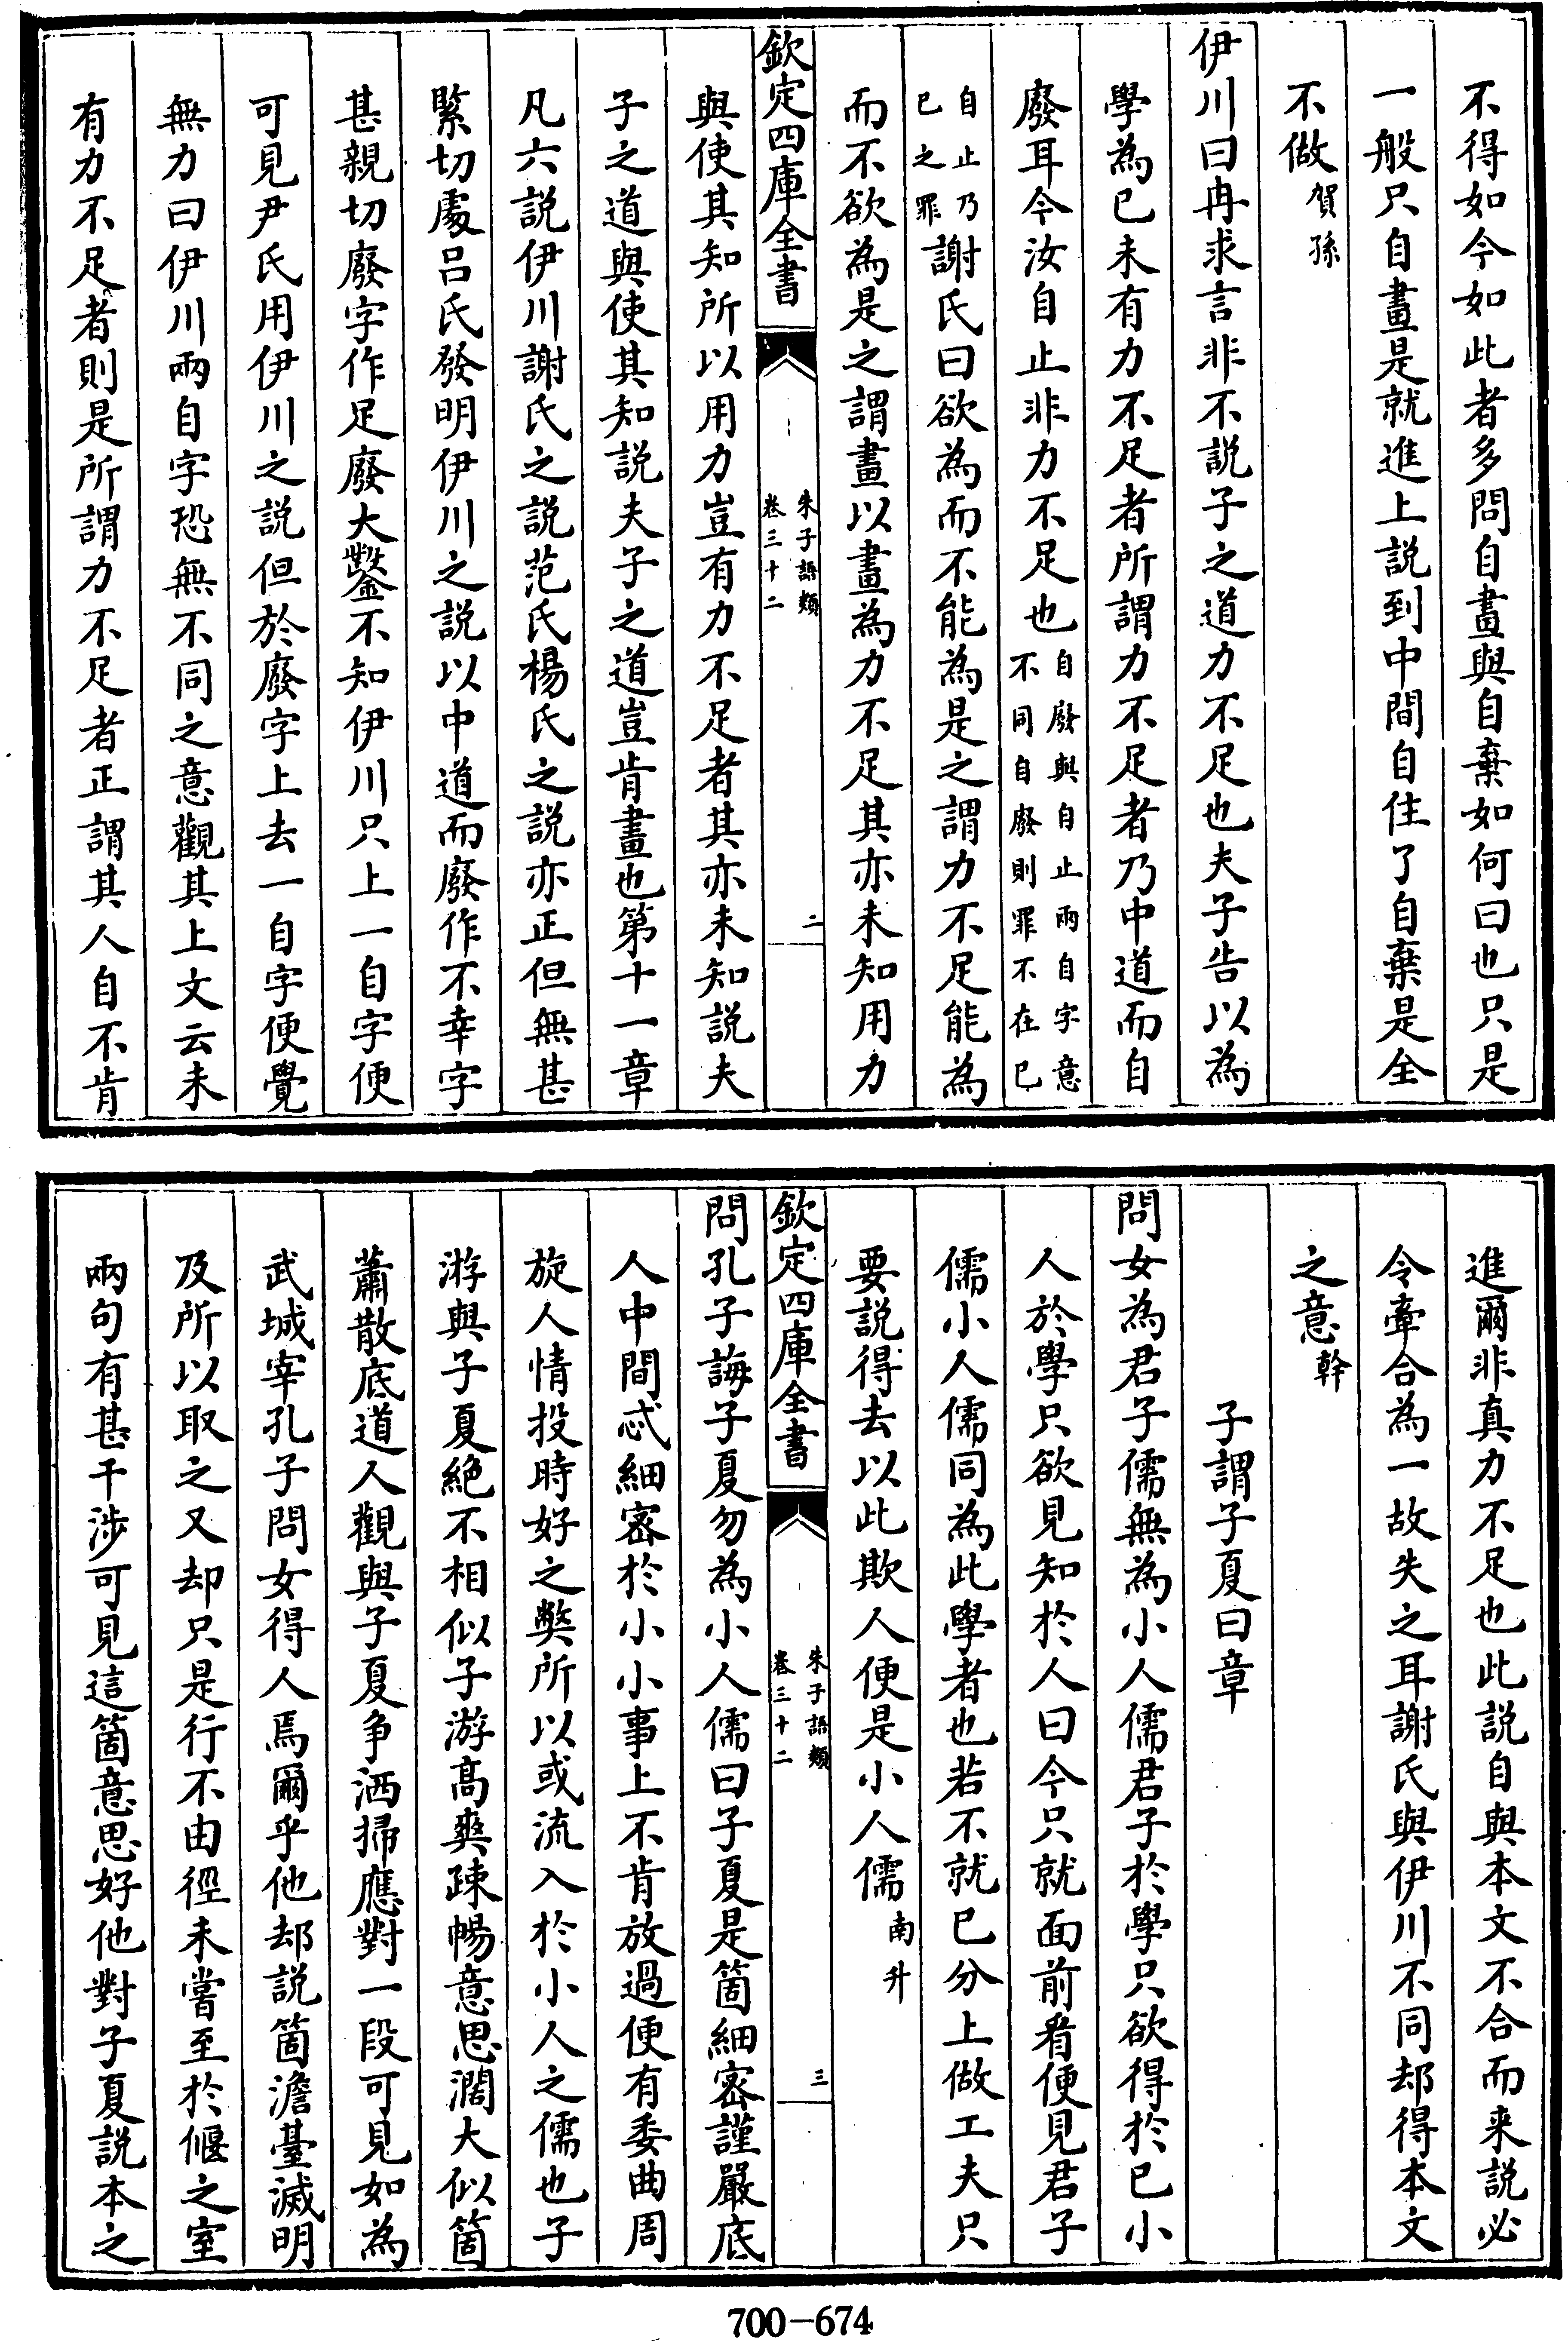 不得如今如此者多問自畫與自棄如何曰也只是
一般只自畫是就進上説到中間自住了自棄是全
不做賀孫
伊川曰冉求言非不説子之道力不足也夫子告以為
學為已未有力不足者所謂力不足者乃中道而自
廢耳今汝自止非力不足也自廢與自止兩自字意不同自廢則罪不在已
自止乃已之罪謝氏曰欲為而不能為是之謂力不足能為
而不欲為是之謂畫以畫為力不足其亦未知用力
欽定四庫全書
朱子語類
卷三十二
二
與使其知所以用力豈有力不足者其亦未知説夫
子之道與使其知説夫子之道豈肯畫也第十一章
凡六説伊川謝氏之説范氏楊氏之説亦正但無甚
緊切處吕氏發明伊川之説以中道而廢作不幸字
甚親切廢字作足廢大鑿不知伊川只上一自字便
可見尹氏用伊川之説但於廢字上去一自字便覺
無力曰伊川兩自字恐無不同之意觀其上文云未
有力不足者則是所謂力不足者正謂其人自不肯
進爾非真力不足也此説自與本文不合而来説必
令牽合為一故失之耳謝氏與伊川不同却得本文
之意幹
子謂子夏曰章
問女為君子儒無為小人儒君子於學只欲得於已小
人於學只欲見知於人曰今只就面前看便見君子
儒小人儒同為此學者也若不就已分上做工夫只
要説得去以此欺人便是小人儒南升
欽定四庫全書
朱子語類
卷三十二
三
問孔子誨子夏勿為小人儒曰子夏是箇細密謹嚴底
人中間忒細密於小小事上不肯放過便有委曲周
旋人情投時好之弊所以或流入於小人之儒也子
游與子夏絶不相似子游髙爽疎暢意思濶大似箇
蕭散底道人觀與子夏争洒掃應對一段可見如為
武城宰孔子問女得人焉爾乎他却説箇澹臺滅明
及所以取之又却只是行不由徑未嘗至於偃之室
兩句有甚干涉可見這箇意思好他對子夏説本之
700-674